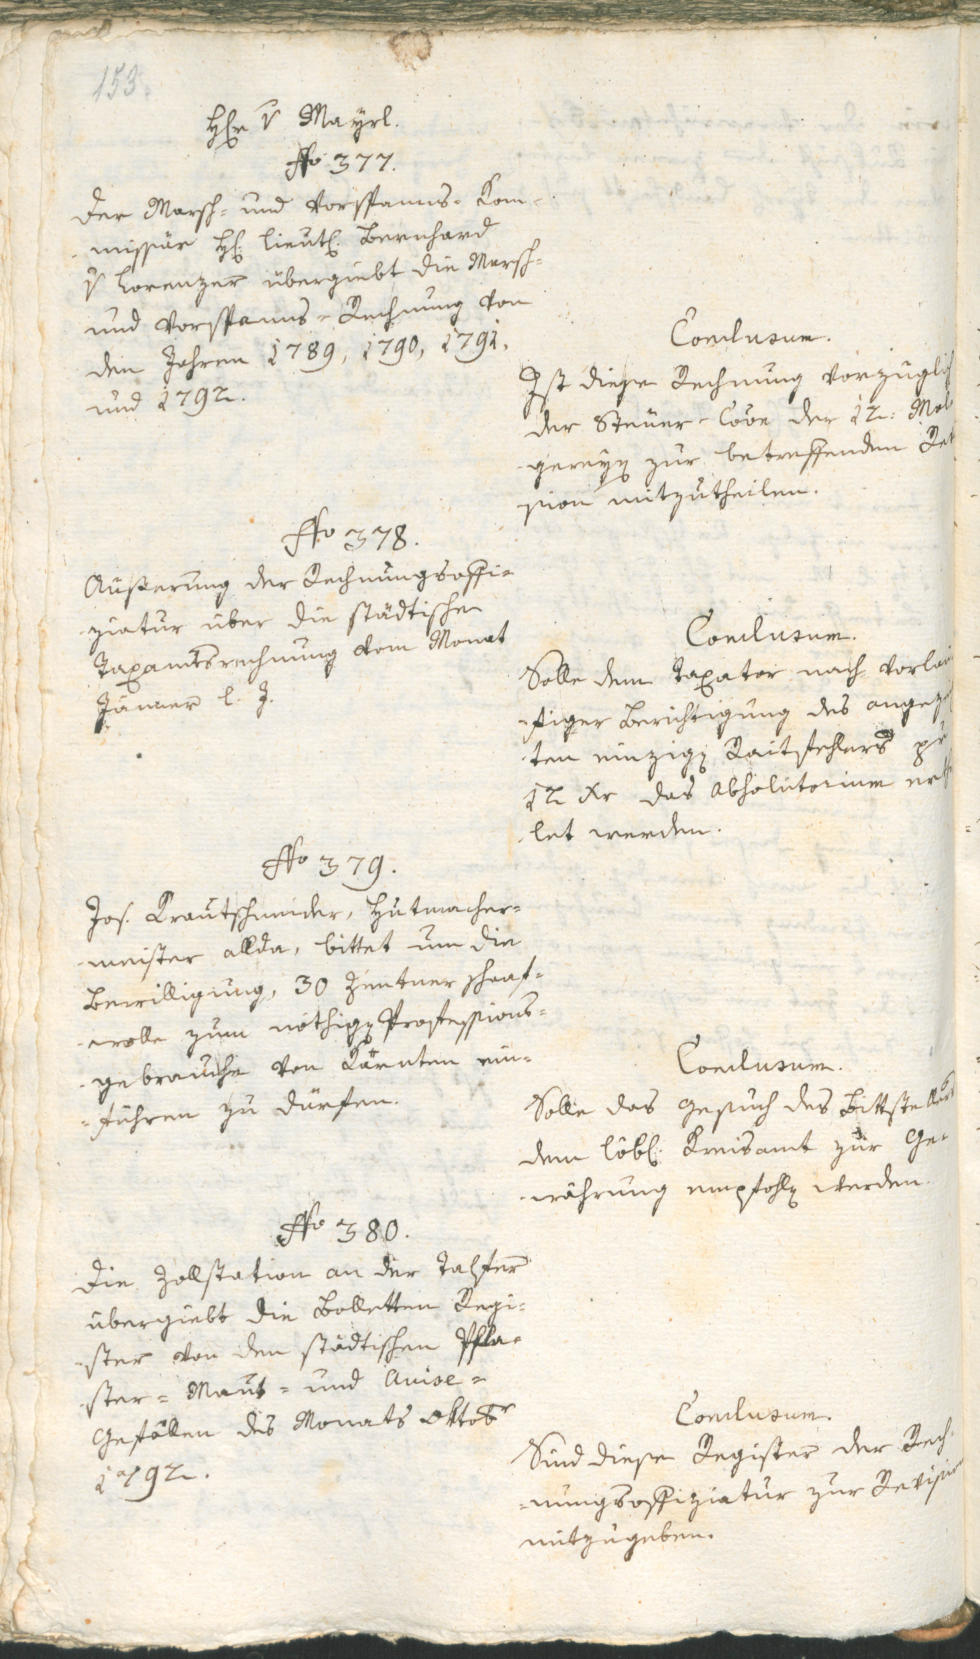 153.
H̄er v Mayrl.
Nro 377.
Der Marsch- und Vorspanns-Kom-
missär H: Lieut: Bernhard
v Lorenzer übergiebt die Marsch-
und Vorspanns-Rechnung von
den Jahren 1789, 1790, 1791,
und 1792.
Conclusum.
Ist diese Rechnung vorzüglich
der Steuer-Coõn der
zur betreffenden
sion mitzutheilen.
Nro 378.
Äußerung der Rechnungsoffi-
ziatur über die städtische
Taxamtsrechnung vom Monat
Jänner l. J.
Conclusum.
Solle dem Taxator nach vorläu
figer Berichtigung des angeze
ten einzigen Raitfehlers pr
12 Xr das Absolutorium erth
let werden.
Nro 379.
Jos. Krautschneider, Hutmacher-
meister allda, bittet um die
Bewilligung, 30 Zentner Schaaf-
wolle zum nöthigen Professions-
gebrauche von Kärnten ein-
führen zu dürfen.
Conclusum.
Solle das Gesuch des Bittstellers
dem löbl: Kreisamt zur Ge-
währung empfohlen werden.
Nro 380.
Die Zollstation an der Talfer
übergiebt die Bolletten Regi-
ster von den städtischen Pfla-
ster- Maut- und Accise-
Gefällen des Monats Oktobr
1792.
Conclusum.
Sind diese Register der Rech-
nungsoffiziatur zur Revision
mitzugeben.